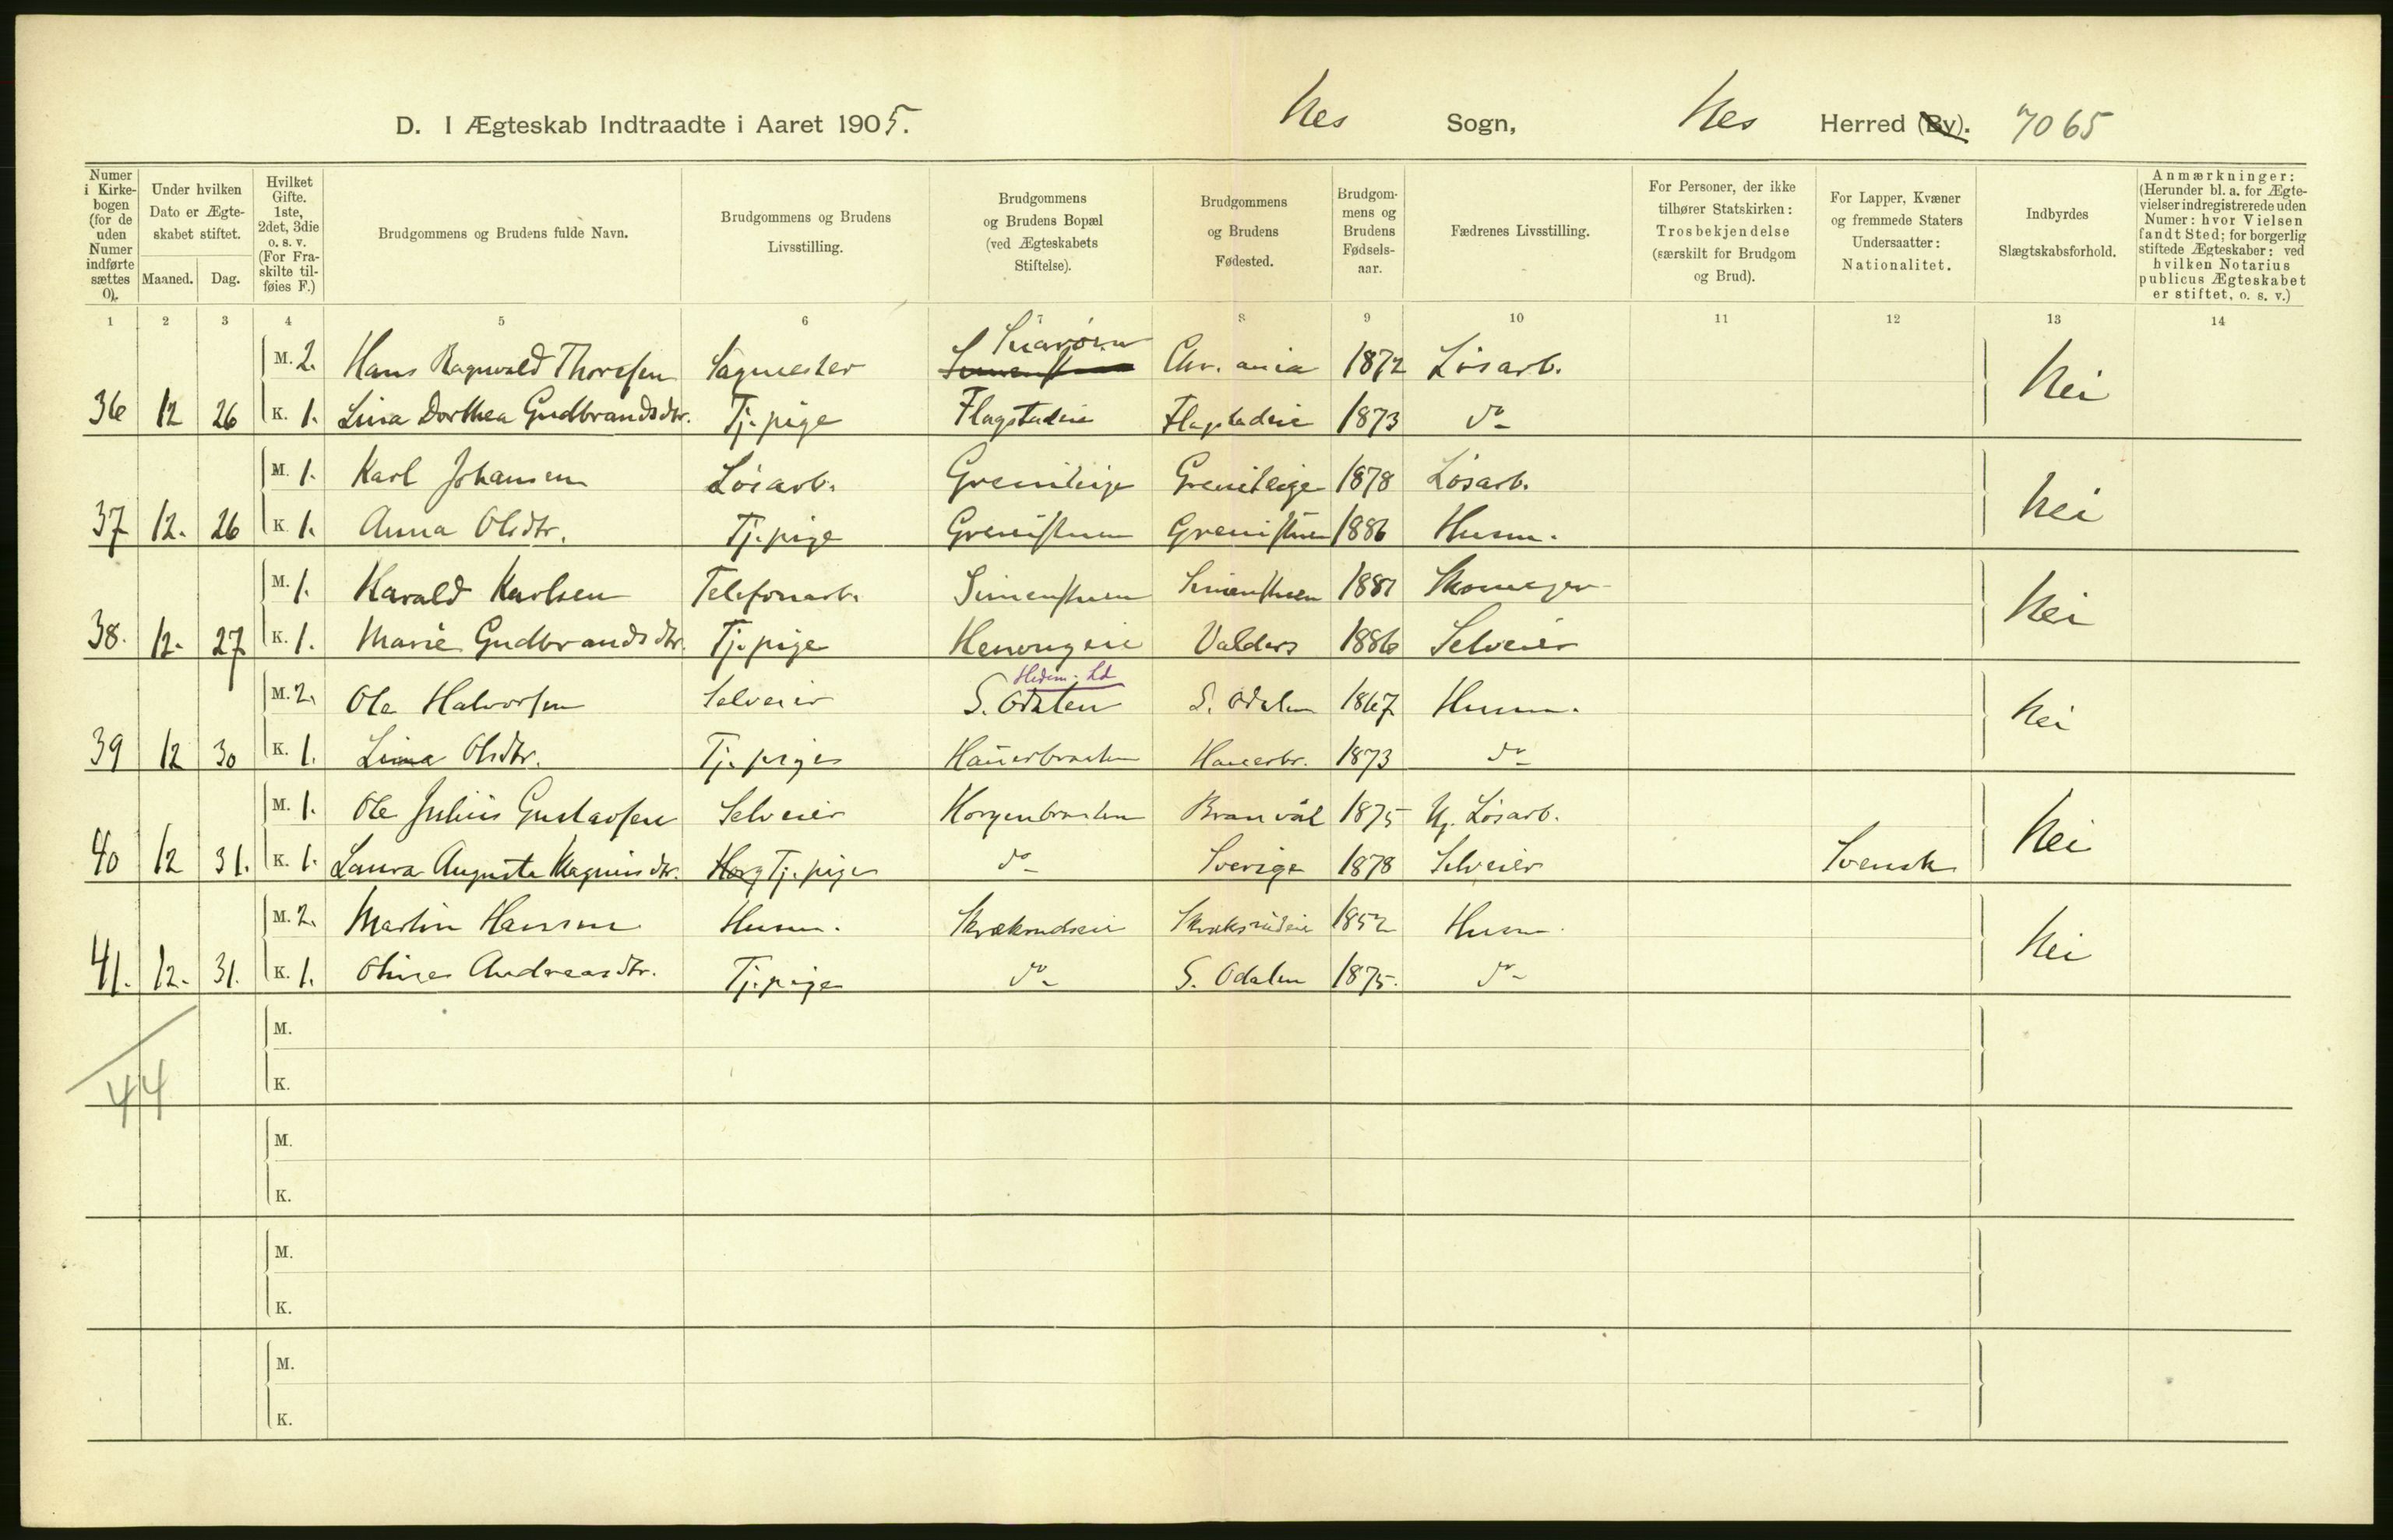 D. I Ægteskab Indtraadte i Aaret 1905. Nes Sogn, Nes Herred (By). 7065
Numer i Kirke- bogen (for de uden Numer indførte sættes 0).
Under hvilken Dato er Ægte- skabet stiftet.
Maaned. Dag.
Hvilket Gifte. 1ste, 2det, 3die o. s. v. (For Fra- skilte til- føies F.)
Brudgommens og Brudens fulde Navn.
Brudgommens og Brudens Livsstilling.
Brudgommens og Brudens Bopæl (ved Ægteskabets Stiftelse).
Brudgommens og Brudens Fødested.
Brudgom- mens og Brudens Fødsels- aar.
Fædrenes Livsstilling.
For Personer, der ikke tilhører Statskirken: Trosbekjendelse (særskilt for Brudgom og Brud).
For Lapper, Kvæner og fremmede Staters Undersaatter: Nationalitet.
Indbyrdes Slægtskabsforhold.
Anmærkninger: (Herunder bl. a. for Ægte- vielser indregistrerede uden Numer: hvor Vielsen fandt Sted; for borgerlig stiftede Ægteskaber: ved hvilken Notarius publicus Ægteskabet er stiftet, o. s. v.)
1 2 3 4 5 6 7 8 9 10 11 12 13 14
M. 2. Hans Ragnvald Thoresen Sagmester Chr. ania 1872 Løsarb. Nei
36 12 26 K. 1. Lina Dorthea Gudbrandsdtr. Tj. pige Flagstadeie Flagstadeie 1873 do
M. 1. Karl Johansen Løsarb. Greniteige Greniteige 1878 Løsarb. Nei
37 12. 26 K. 1. Anna Olsdtr. Tj. pige Grenistuen Grenistuen 1886 Husm.
M. 1. Harald Karlsen Telefonarb. Simenstuen Simenstuen 1881 Skomager Nei
38. 12. 27 K. 1. Marie Gudbrandsdtr. Tj. pige Valders 1886 Selveier
Hedem. Ld
M. 2. Ole Halvorsen Selveier S. Odalen S. Odalen 1867 Husm. Nei
39 12 30 K. 1. Lina Olsdtr. Tj. pige Hauerbraaten Hauerbr. 1873 do
M. 1. Ole Julius Gustavsen Selveier Horgenbraaten Branvål 1875 Løsarb. Nei
40 12 31. K. 1. Laura Augusta Magnusdtr. Horg Tj. pige do Sverige 1878 Selveier Svensk
M. 2. Martin Hansen Husm. Skræksrudseie Skræksrudeie 1852 Husm. Nei
41. 12. 31. K. 1. Oline Andreasdtr. Tj. pige do S. Odalen 1875. do
M.
44 K.
M.
K.
M.
K.
M.
K.